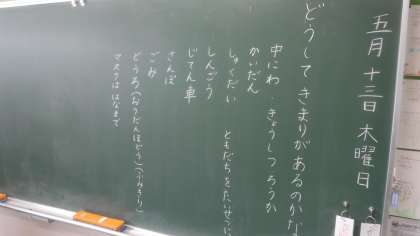 五月十三日木曜日
どうしてきまりがあるのかな
中にわ・きょうしつろうか
かいだん
しゅくだい
しんごう
じてん車
さんぽ
ごみ
どうろ(おうだんほどう)(ふみきり)
マスクははなまで
ともだちをたいせつに